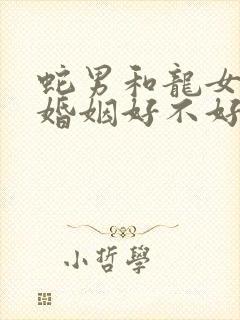 蛇男和龍女
婚姻好不好
小哲學